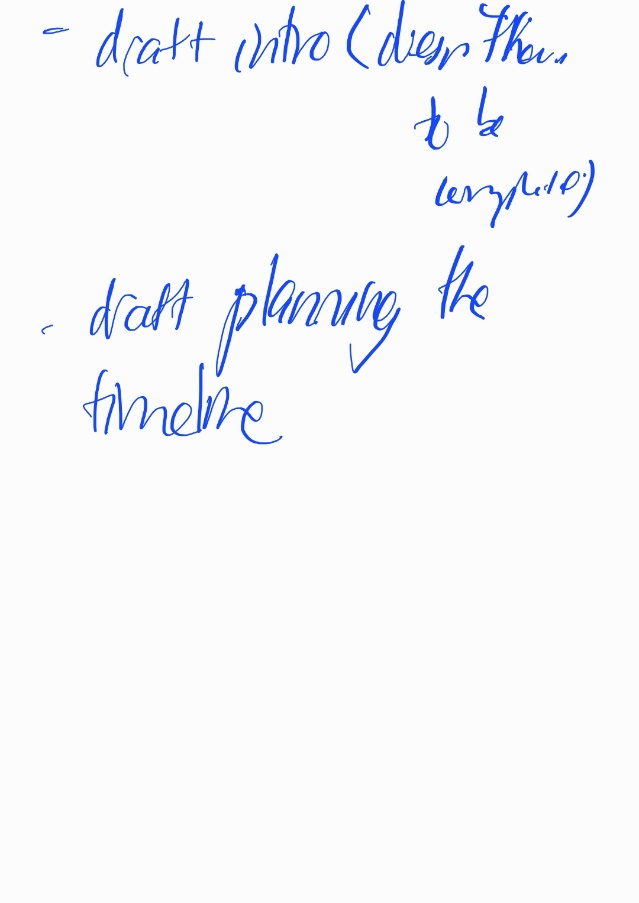 - draft intro (doesn't have
to be
complete)
- draft planning the
timeline